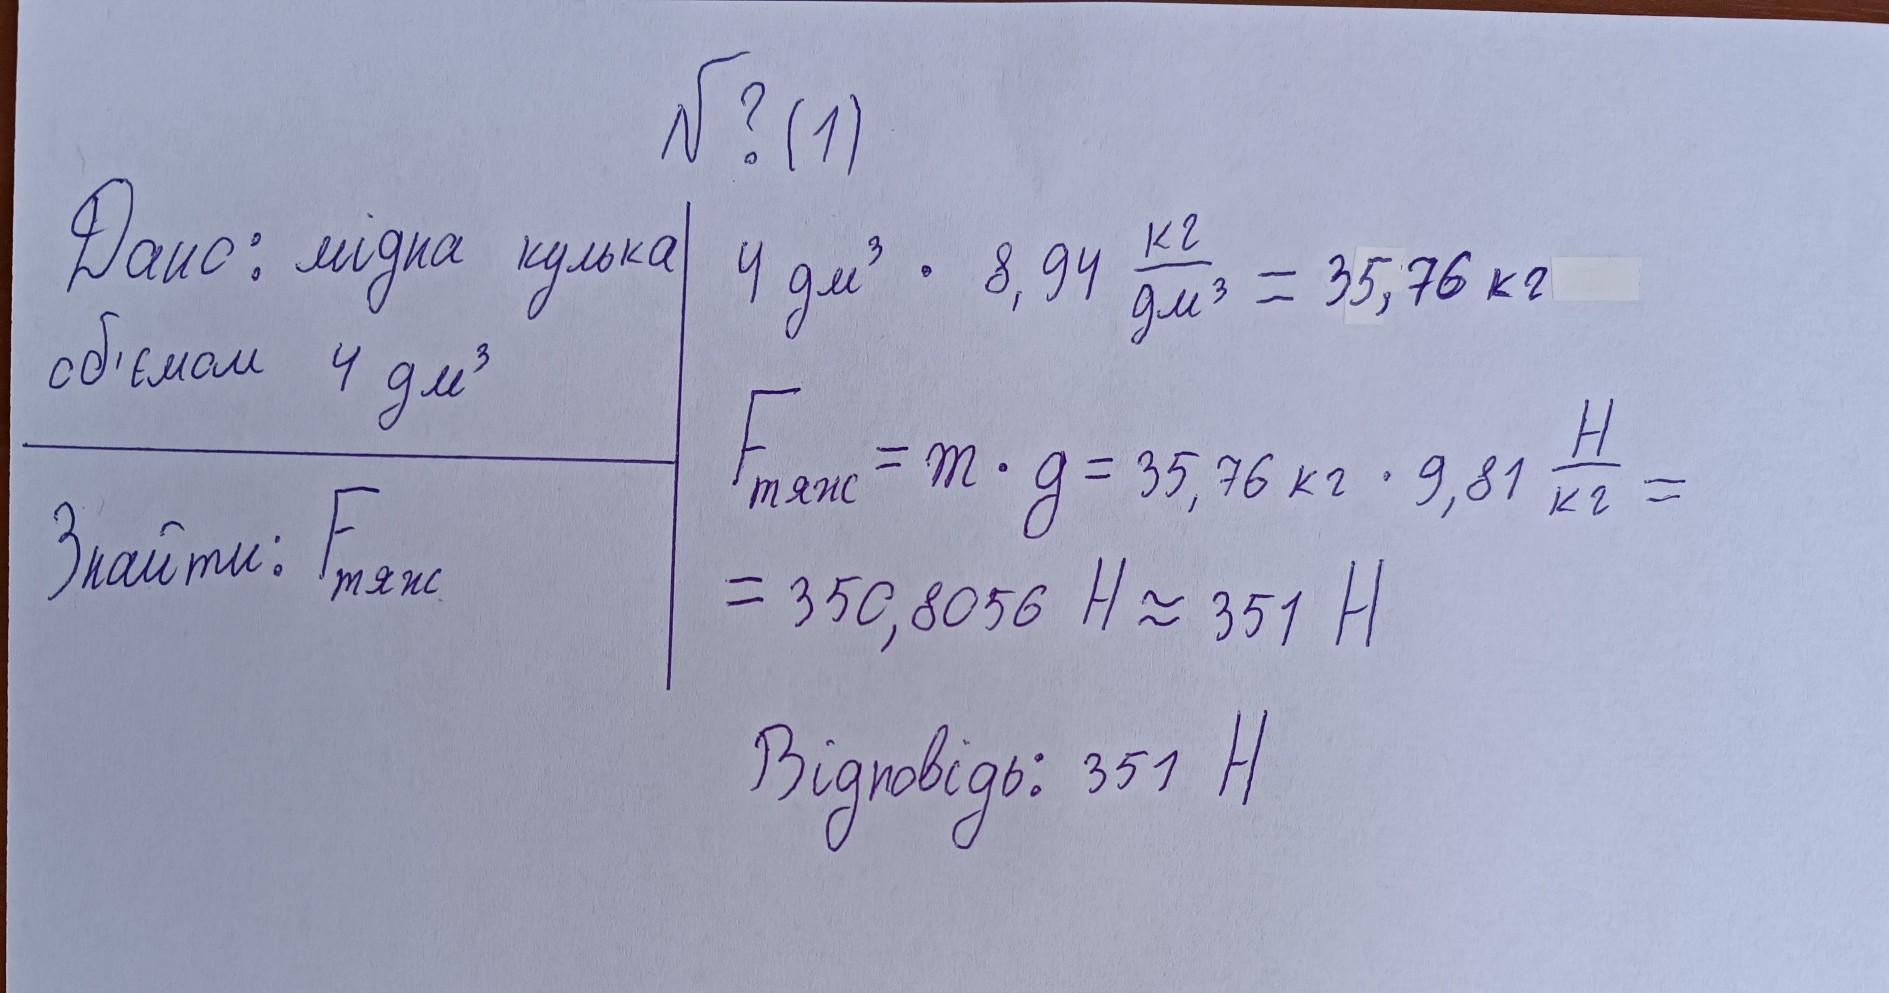 № ? (1)
Дано: мідна кулька
об'ємом 4 дм³
Знайти: Fтяж
4 дм³ · 8,94 кг/дм³ = 35,76 кг
Fтяж = m · g = 35,76 кг · 9,81 Н/кг =
= 350,8056 Н ≈ 351 Н
Відповідь: 351 Н